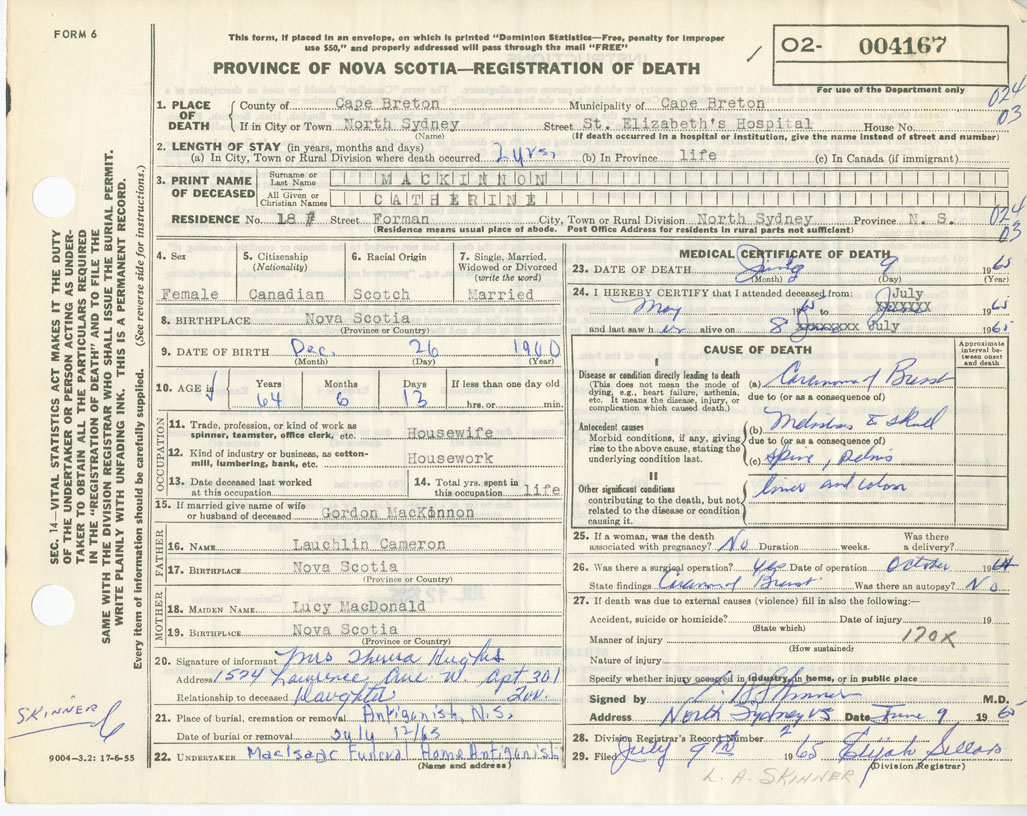 FORM 6
This form, if placed in an envelope, on which is printed "Dominion Statistics—Free, penalty for improper
use $50," and properly addressed will pass through the mail "FREE"
PROVINCE OF NOVA SCOTIA—REGISTRATION OF DEATH
02- 004167
For use of the Department only
024
03
1. PLACE OF DEATH
County of Cape Breton Municipality of Cape Breton
If in City or Town North Sydney Street St. Elizabeth's Hospital House No.
(Name) (If death occurred in a hospital or institution, give the name instead of street and number)
2. LENGTH OF STAY (in years, months and days)
(a) In City, Town or Rural Division where death occurred 2 yrs. (b) In Province life (c) In Canada (if immigrant)
3. PRINT NAME OF DECEASED
Surname or Last Name MACKINNON
All Given or Christian Names CATHERINE
RESIDENCE No. 18 Street Forman City, Town or Rural Division North Sydney Province N. S.
(Residence means usual place of abode. Post Office Address for residents in rural parts not sufficient)
024
03
4. Sex 5. Citizenship (Nationality) 6. Racial Origin 7. Single, Married, Widowed or Divorced (write the word)
Female Canadian Scotch Married
8. BIRTHPLACE Nova Scotia
(Province or Country)
9. DATE OF BIRTH Dec. 26 1900
(Month) (Day) (Year)
10. AGE in Years Months Days If less than one day old
64 6 13 hrs. or min.
OCCUPATION
11. Trade, profession, or kind of work as
spinner, teamster, office clerk, etc. Housewife
12. Kind of industry or business, as cotton-
mill, lumbering, bank, etc. Housework
13. Date deceased last worked
at this occupation
14. Total yrs. spent in
this occupation life
15. If married give name of wife
or husband of deceased Gordon MacKinnon
FATHER
16. NAME Lauchlin Cameron
17. BIRTHPLACE Nova Scotia
(Province or Country)
MOTHER
18. MAIDEN NAME Lucy MacDonald
19. BIRTHPLACE Nova Scotia
(Province or Country)
20. Signature of informant Mrs Hughes
Address 1574 Lawrence Ave. W. Apt 301
Relationship to deceased Daughter Tor.
21. Place of burial, cremation or removal Antiganish, N.S.
Date of burial or removal July 12/65
22. UNDERTAKER MacIsaac Funeral Home Antiganish
(Name and address)
MEDICAL CERTIFICATE OF DEATH
23. DATE OF DEATH 9 1965
(Month) (Day) (Year)
24. I HEREBY CERTIFY that I attended deceased from:
July
May 1965 to XXXXXXX 1965
and last saw her alive on 8 xxxxxxx July 1965
CAUSE OF DEATH
Approximate interval between onset and death
I
Disease or condition directly leading to death
(This does not mean the mode of
dying, e.g., heart failure, asthenia,
etc. It means the disease, injury, or
complication which caused death.)
(a) Carcinoma of Breast
due to (or as a consequence of)
Antecedent causes
Morbid conditions, if any, giving
rise to the above cause, stating the
underlying condition last.
(b) to Skull
due to (or as a consequence of)
(c) Spine, Pelvis
II
Other significant conditions
contributing to the death, but not
related to the disease or condition
causing it.
liver and colon
25. If a woman, was the death
associated with pregnancy? No Duration weeks. Was there a delivery?
26. Was there a surgical operation? yes Date of operation October 1964
State findings Carcinoma of Breast Was there an autopsy? No
27. If death was due to external causes (violence) fill in also the following:—
Accident, suicide or homicide? Date of injury 19
(State which)
170X
Manner of injury
(How sustained)
Nature of injury
Specify whether injury occurred in industry, in home, or in public place
Signed by Skinner M.D.
Address North Sydney NS Date June 9 1965
28. Division Registrar's Record Number 2
29. Filed July 9th 1965 Elijah Sellars
(Division Registrar)
L. A. SKINNER
SEC. 14—VITAL STATISTICS ACT MAKES IT THE DUTY
OF THE UNDERTAKER OR PERSON ACTING AS UNDER-
TAKER TO OBTAIN ALL THE PARTICULARS REQUIRED
IN THE "REGISTRATION OF DEATH" AND TO FILE THE
SAME WITH THE DIVISION REGISTRAR WHO SHALL ISSUE THE BURIAL PERMIT.
WRITE PLAINLY WITH UNFADING INK. THIS IS A PERMANENT RECORD.
Every item of information should be carefully supplied. (See reverse side for instructions.)
SKINNER
9004-3.2: 17-6-55